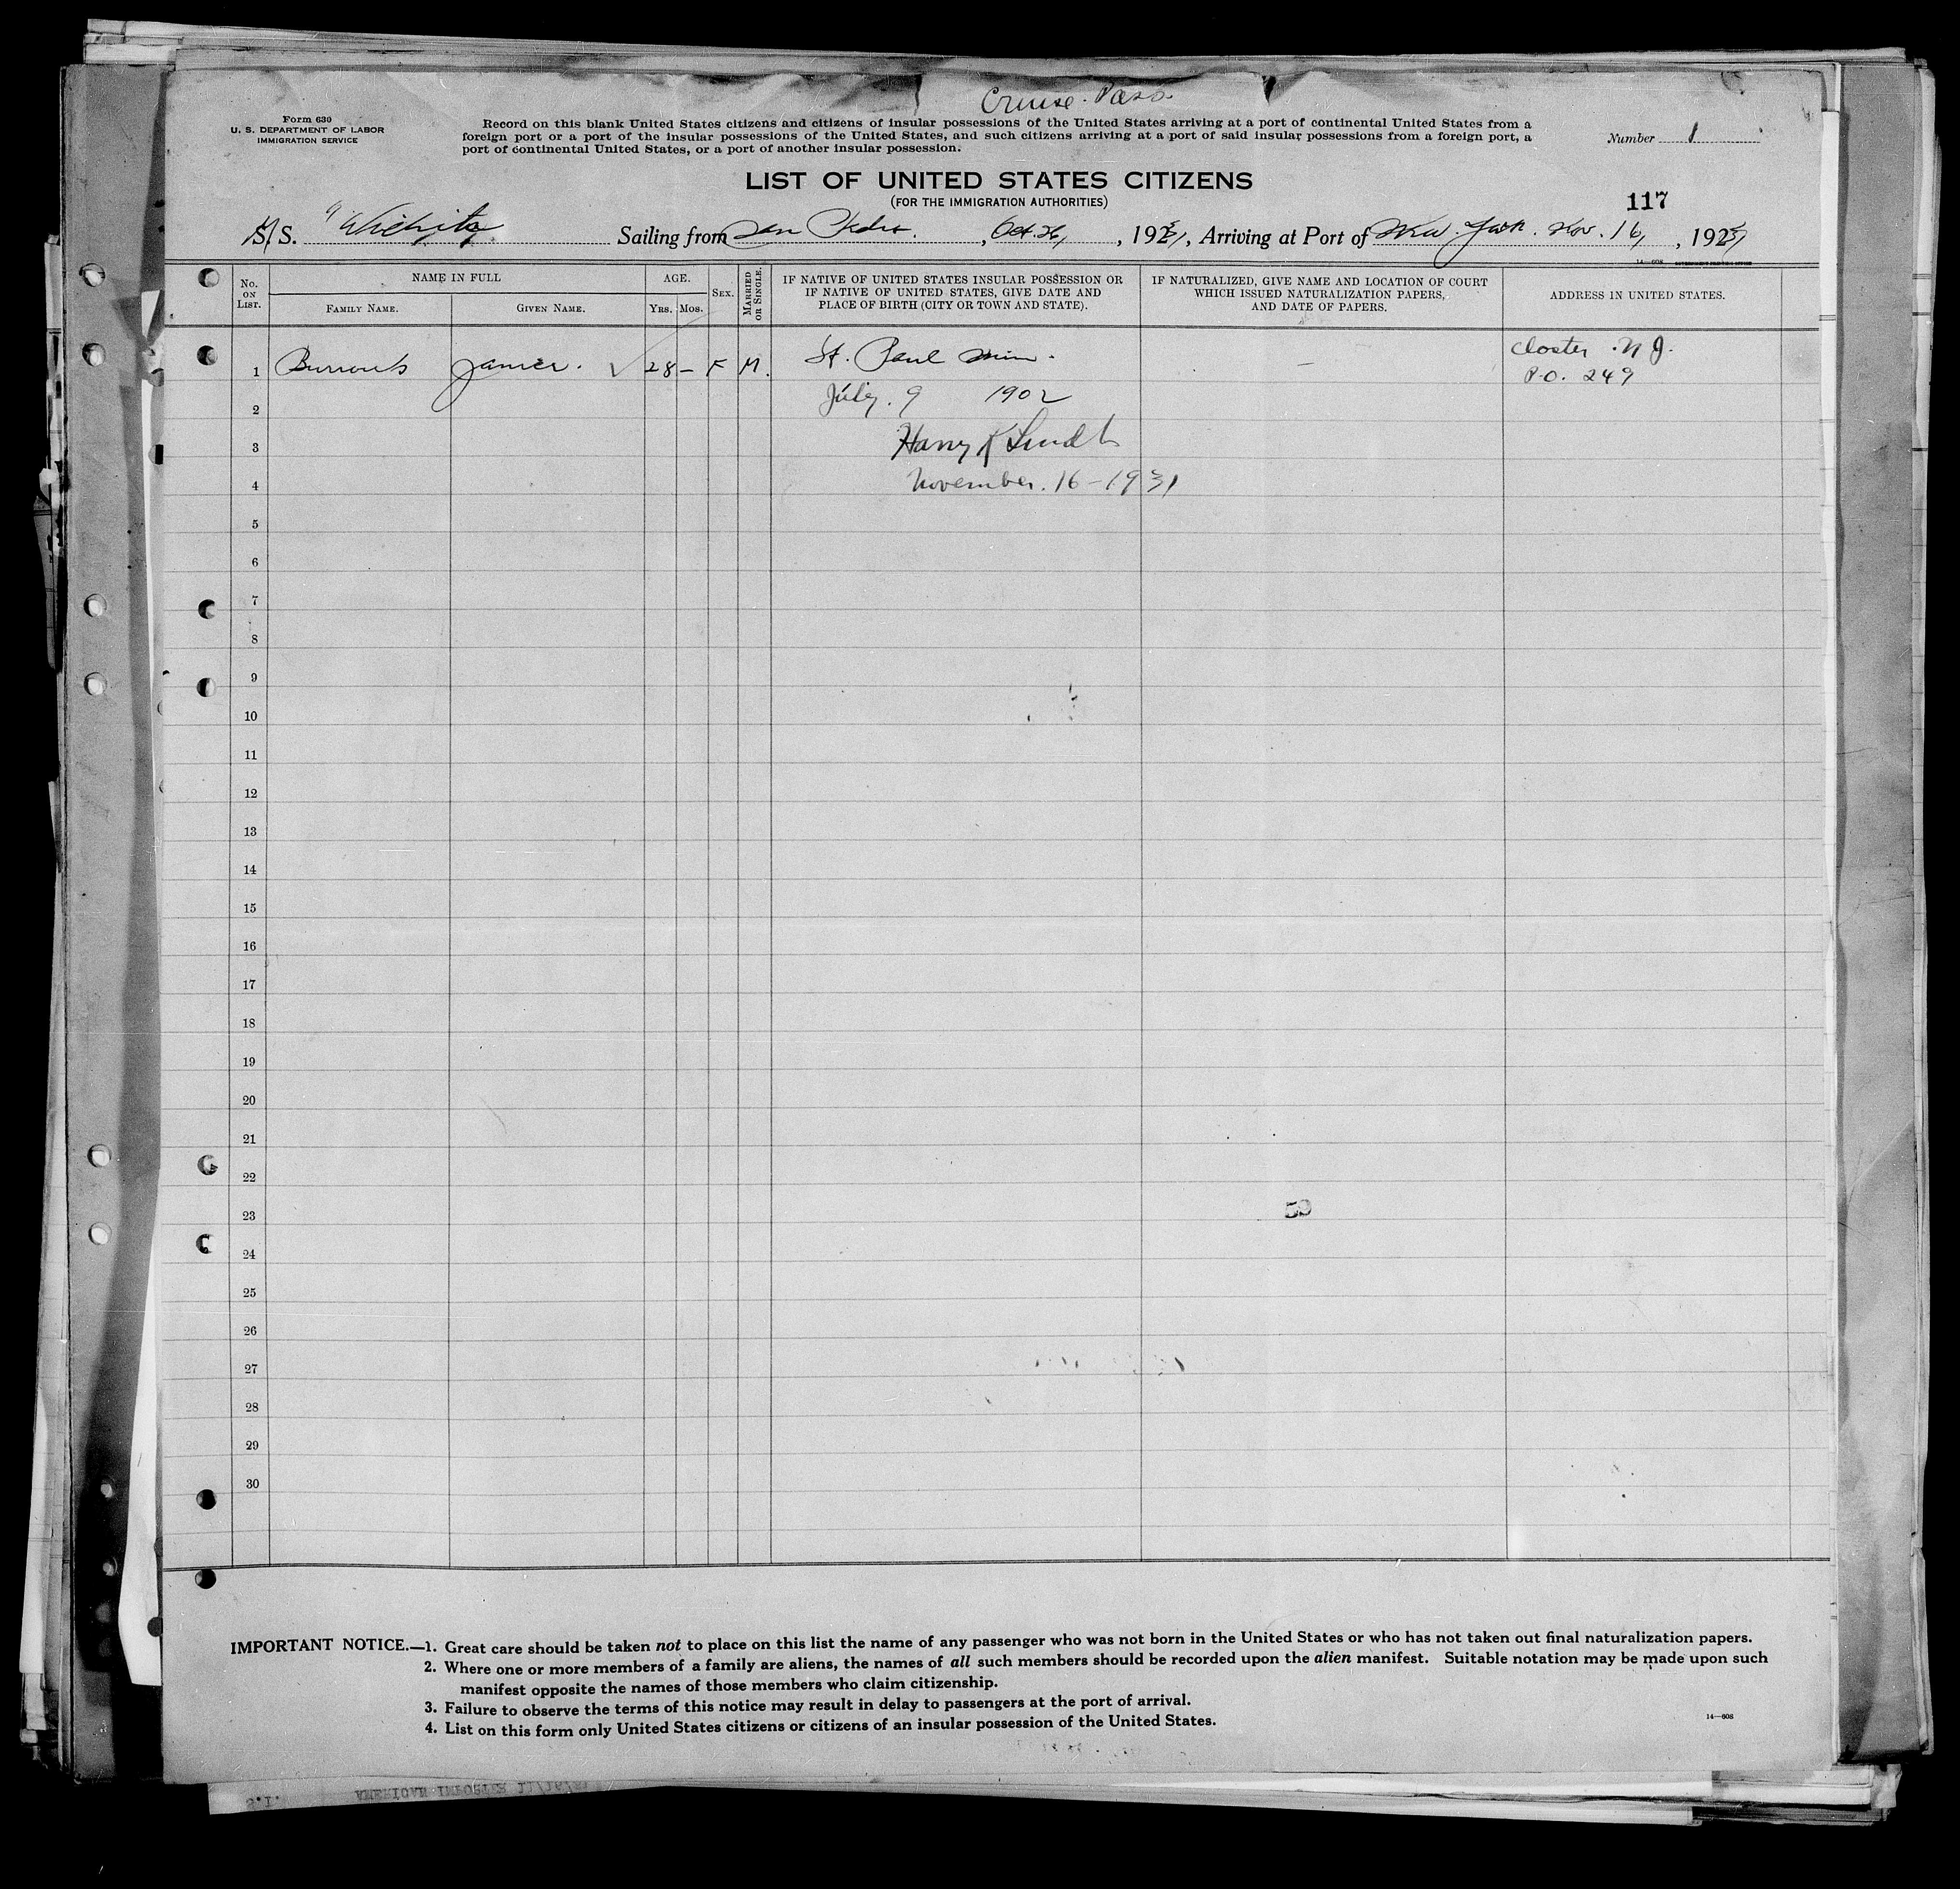 Cruise Pass.
Form 630
U. S. DEPARTMENT OF LABOR
IMMIGRATION SERVICE
Record on this blank United States citizens and citizens of insular possessions of the United States arriving at a port of continental United States from a
foreign port or a port of the insular possessions of the United States, and such citizens arriving at a port of said insular possessions from a foreign port, a
port of continental United States, or a port of another insular possession.
Number 1
LIST OF UNITED STATES CITIZENS
(FOR THE IMMIGRATION AUTHORITIES)
117
M.S. "Wichita" Sailing from San Pedro, Oct. 26, 1931, Arriving at Port of New York. Nov. 16, 1931
14—608 GOVERNMENT PRINTING OFFICE
No. ON LIST.
NAME IN FULL
FAMILY NAME. GIVEN NAME.
AGE.
YRS. MOS.
SEX.
MARRIED OR SINGLE.
IF NATIVE OF UNITED STATES INSULAR POSSESSION OR
IF NATIVE OF UNITED STATES, GIVE DATE AND
PLACE OF BIRTH (CITY OR TOWN AND STATE).
IF NATURALIZED, GIVE NAME AND LOCATION OF COURT
WHICH ISSUED NATURALIZATION PAPERS,
AND DATE OF PAPERS.
ADDRESS IN UNITED STATES.
1 28 – F M. St. Paul Minn. – Closter N J.
P.O. 249
2 July. 9 1902
3 Harry K
4 November. 16 - 1931
5
6
7
8
9
10
11
12
13
14
15
16
17
18
19
20
21
22
23
24
25
26
27
28
29
30
IMPORTANT NOTICE.—1. Great care should be taken not to place on this list the name of any passenger who was not born in the United States or who has not taken out final naturalization papers.
2. Where one or more members of a family are aliens, the names of all such members should be recorded upon the alien manifest. Suitable notation may be made upon such
manifest opposite the names of those members who claim citizenship.
3. Failure to observe the terms of this notice may result in delay to passengers at the port of arrival.
4. List on this form only United States citizens or citizens of an insular possession of the United States.
14—608